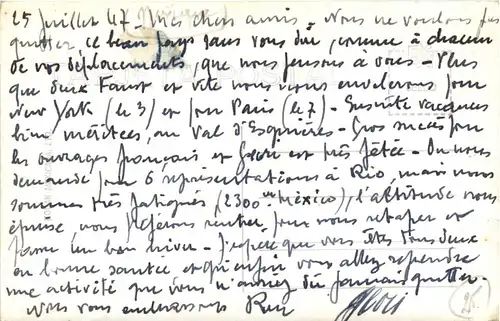 25 Juillet 47 - Mes chers amis - Nous ne voulons pas
quitter, ce beau pays sans vous dire, comme à chacun
de vos déplacements, que nous pensons à vous - Plus
que deux Faust et vite nous nous envolerons pour
New York (le 3) et pour Paris (le 7) - Ensuite vacances
bien méritées, au Val d'Esquières - Gros succès pour
les ouvrages français et Géori est très fêtée - On nous
demande pour 6 représentations à Rio, mais nous
sommes très fatigués, (2300 m Mexico), l'altitude nous
épuise, nous préférons rentrer pour nous retaper et
passer un bon hiver - J'espère que vous êtes tous deux
en bonne santée et qu'enfin vous allez reprendre
une activité que vous n'auriez dû jamais quitter -
Nous vous embrassons